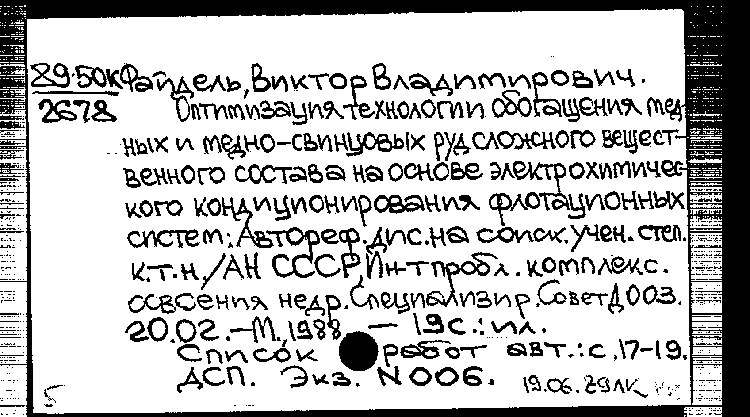 89-50к Файдель, Виктор Владимирович.
2678 Оптимизация технологии обогащения мед-
ных и медно-свинцовых руд сложного вещест-
венного состава на основе электрохимичес-
кого кондиционирования флотационных
систем: Автореф. дис. на соиск. учен. степ.
к.т.н. /АН СССР, Ин-т пробл. комплекс.
освоения недр. Специализир. Совет Д 003.
20.02. -М., 1988 - 19 с.: ил.
Список работ авт.: с. 17-19.
ДСП. Экз. N 006. 19.06.89
5